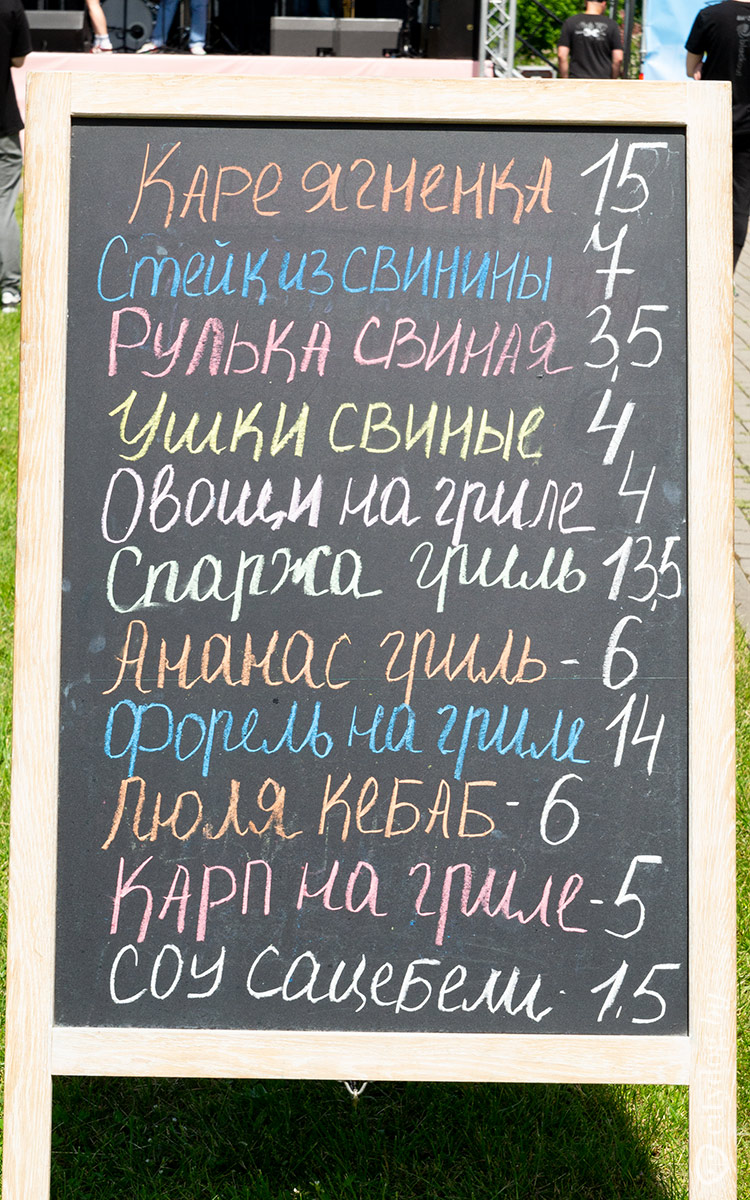 Каре ягненка 15
Стейк из свинины 7
Рулька свиная 3,5
Ушки свиные 4
Овощи на гриле 4
Спаржа гриль 13,5
Ананас гриль - 6
Форель на гриле 14
Люля кебаб - 6
Карп на гриле - 5
Соу сацебели - 1,5